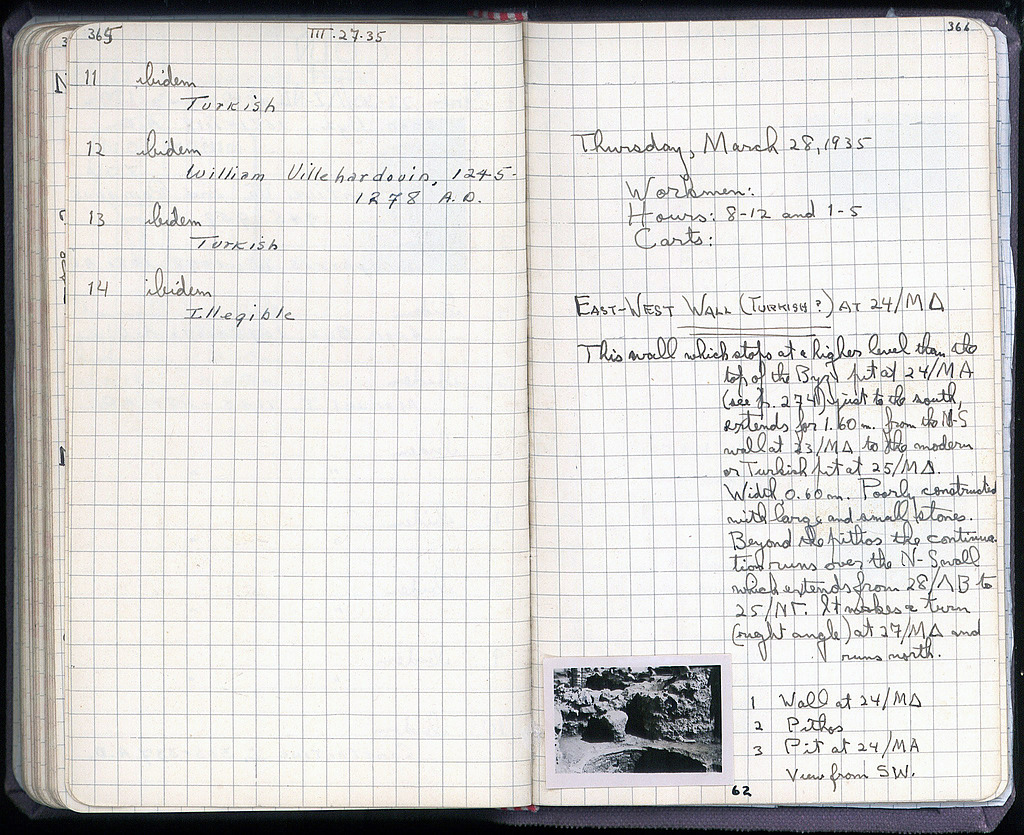 365
III.27.35
11 ibidem
Turkish
12 ibidem
William Villehardouin, 1245-
1278 A.D.
13 ibidem
Turkish
14 ibidem
Illegible
366
Thursday, March 28, 1935
Workmen:
Hours: 8-12 and 1-5
Carts:
EAST-WEST WALL (TURKISH?) AT 24/MΔ
This wall which stops at a higher level than the
top of the Byz. pit at 24/MA
(see p. 274) just to the south,
extends for 1.60 m. from the N-S
wall at 23/MΔ to the modern
or Turkish pit at 25/MΔ.
Width, 0.60 m. Poorly constructed
with large and small stones.
Beyond the pithos the continua-
tion runs over the N-S wall
which extends from 28/ΛB to
25/NΓ. It makes a turn
(right angle) at 27/MΔ and
runs north.
1 Wall at 24/MΔ
2 Pithos
3 Pit at 24/MA
View from SW.
62